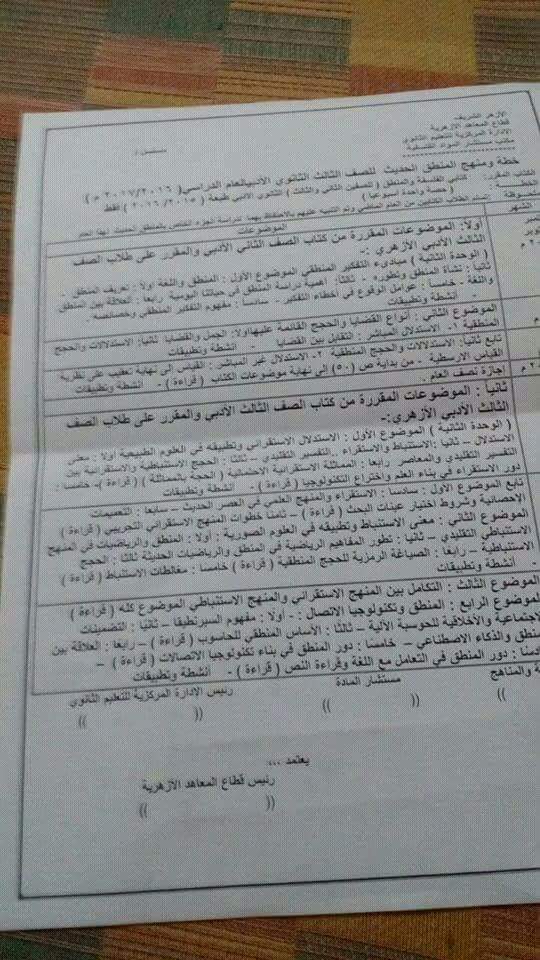 الأزهر الشريف
قطاع المعاهد الأزهرية
الادارة المركزية للتعليم الثانوي
مكتب مستشار المواد الفلسفية
خطة ومنهج المنطق الحديث للصف الثالث الثانوي الأدبي للعام الدراسي (٢٠١٦/٢٠١٧ م)
الكتاب المقرر: كتابي الفلسفة والمنطق (للصفين الثاني والثالث) الثانوي الأدبي طبعة (٢٠١٥/٢٠١٦) فقط
(حصة واحدة أسبوعيا)
الموضوعات
الشهر
أولاً: الموضوعات المقررة من كتاب الصف الثاني الأدبي والمقرر على طلاب الصف
الثالث الأدبي الأزهري :-
( الوحدة الثانية ) مبادىء التفكير المنطقي الموضوع الأول : المنطق واللغة أولاً : تعريف المنطق -
ثانياً : نشأة المنطق وتطوره - ثالثاً: أهمية دراسة المنطق في حياتنا اليومية رابعا : العلاقة بين المنطق
واللغة - خامساً : عوامل الوقوع في أخطاء التفكير - سادساً : مفهوم التفكير المنطقي وخصائصه .
- أنشطة وتطبيقات
الموضوع الثاني : أنواع القضايا والحجج القائمة عليها أولا: الجمل والقضايا ثانياً: الاستدلالات والحجج
المنطقية ١- الاستدلال المباشر : التقابل بين القضايا - أنشطة وتطبيقات
تابع ثانياً: الاستدلالات والحجج المنطقية ٢- الاستدلال غير المباشر : القياس إلى نهاية تعقيب على نظرية
القياس الارسطية - من بداية ص (٥٠) إلى نهاية موضوعات الكتاب ( قراءة ) - أنشطة وتطبيقات
اجازة نصف العام .
ثانياً : الموضوعات المقررة من كتاب الصف الثالث الأدبي والمقرر على طلاب الصف
الثالث الأدبي الأزهري:-
( الوحدة الثانية ) الموضوع الأول : الاستدلال الاستقرائي وتطبيقه في العلوم الطبيعية أولا : معنى
الاستدلال – ثانيا :الاستنباط والاستقراء ..التفسير التقليدي – ثالثاً : الحجج الاستنباطية والاستقرائية بين
التفسير التقليدي والمعاصر رابعا : المماثلة الاستقرائية الاحصائية ( الحجة بالمماثلة ) ( قراءة )- خامساً :
دور الاستقراء في بناء العلم واختراع التكنولوجيا ( قراءة ) - أنشطة وتطبيقات
تابع الموضوع الأول : سادسا : الاستقراء والمنهج العلمي في العصر الحديث – سابعا : التعميمات
الإحصائية وشروط اختيار عينات البحث ( قراءة ) – ثامنا خطوات المنهج الاستقرائي التجريبي ( قراءة )
الموضوع الثاني : معنى الاستنباط وتطبيقه في العلوم الصورية : أولا : المنطق والرياضيات في المنهج
الاستنباطي التقليدي – ثانيا : تطور المفاهيم الرياضية في المنطق والرياضيات الحديثة ثالثا : الحجج
الاستنباطية – رابعا : الصياغة الرمزية للحجج المنطقية ( قراءة ) خامسا : مغالطات الاستنباط ( قراءة )
- أنشطة وتطبيقات
الموضوع الثالث : التكامل بين المنهج الاستقرائي والمنهج الاستنباطي الموضوع كله ( قراءة )
الموضوع الرابع : المنطق وتكنولوجيا الاتصال : - أولا : مفهوم السبرنطيقا – ثانيا : التضمينات
الاجتماعية والاخلاقية للحوسبة الآلية – ثالثا : الأساس المنطقي للحاسوب ( قراءة ) – رابعا : العلاقة بين
المنطق والذكاء الاصطناعي – خامسا : دور المنطق في بناء تكنولوجيا الاتصالات ( قراءة ) –
سادسا : دور المنطق في التعامل مع اللغة وقراءة النص ( قراءة ) - أنشطة وتطبيقات
والمناهج مستشار المادة رئيس الادارة المركزية للتعليم الثانوي
(( (( )) (( ))
يعتمد ،،،
رئيس قطاع المعاهد الأزهرية
(( ))